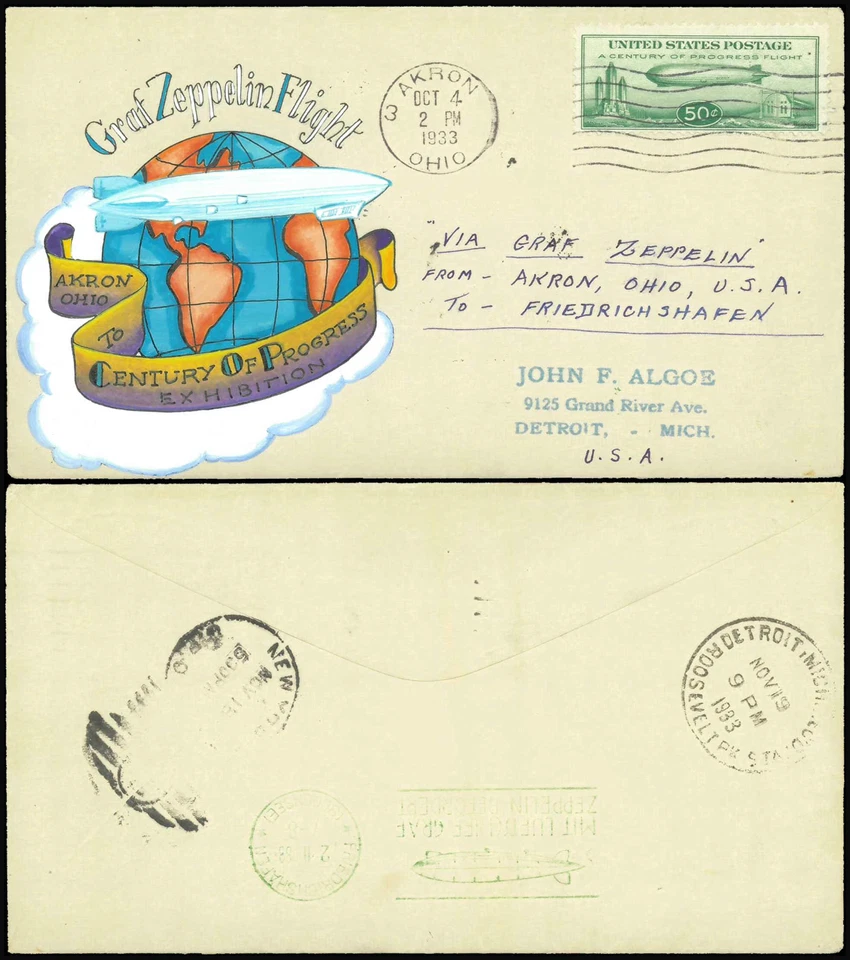 Graf Zeppelin Flight
AKRON
OHIO
TO
CENTURY OF PROGRESS
EXHIBITION
3 AKRON
OCT 4
2 PM
1933
OHIO
UNITED STATES POSTAGE
A CENTURY OF PROGRESS FLIGHT
50¢
"VIA GRAF ZEPPELIN"
FROM - AKRON, OHIO, U.S.A.
TO - FRIEDRICHSHAFEN
JOHN F. ALGOE
9125 Grand River Ave.
DETROIT, - MICH.
U.S.A.
NEW
NOV
DETROIT, MICH.
ROOSEVELT PK. STA.
NOV 19
9 PM
1933
MIT LUFTSCHIFF GRAF
ZEPPELIN BEFÖRDERT
FRIEDRICHSHAFEN
2.11.33